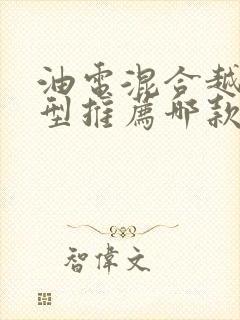 油電混合越
型推薦哪款
智偉文